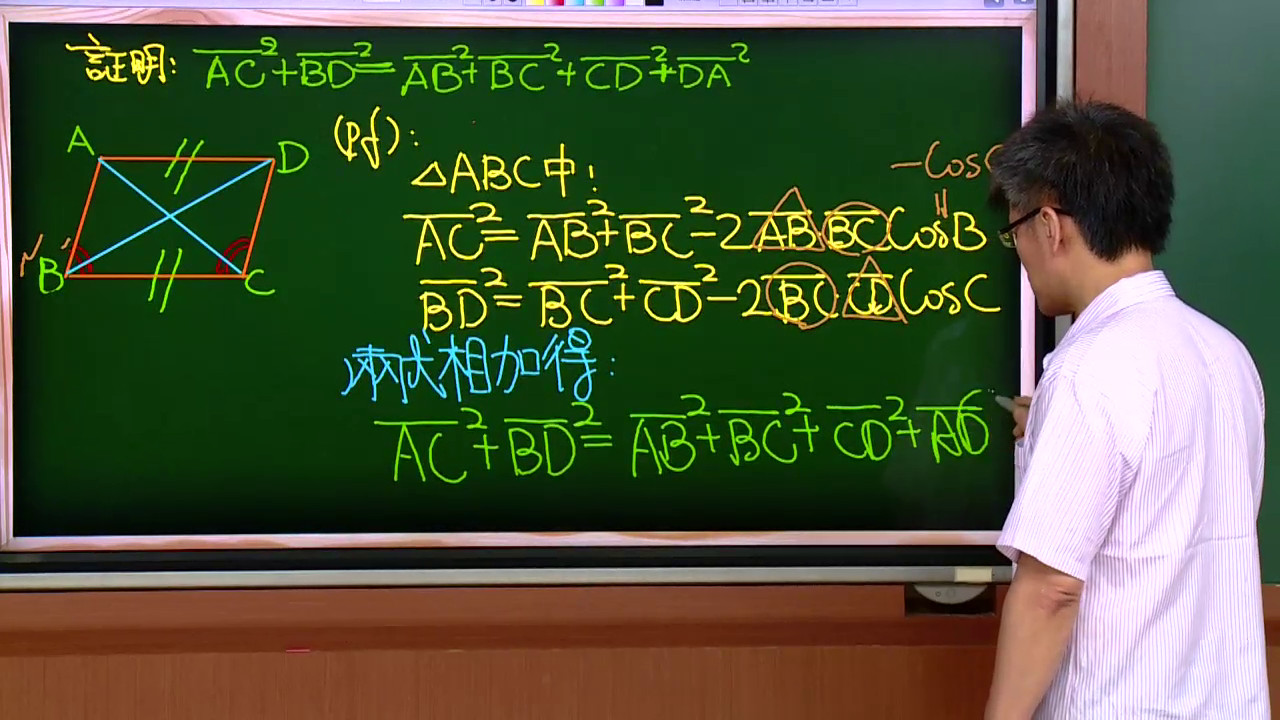 証明: AC²+BD²=AB²+BC²+CD²+DA²
(pf):
A
D
B
C
△ABC中:
-Cos
AC²=AB²+BC²-2AB·BCCosB
BD²=BC²+CD²-2BC·CDCosC
兩式相加得:
AC²+BD²=AB²+BC²+CD²+AD